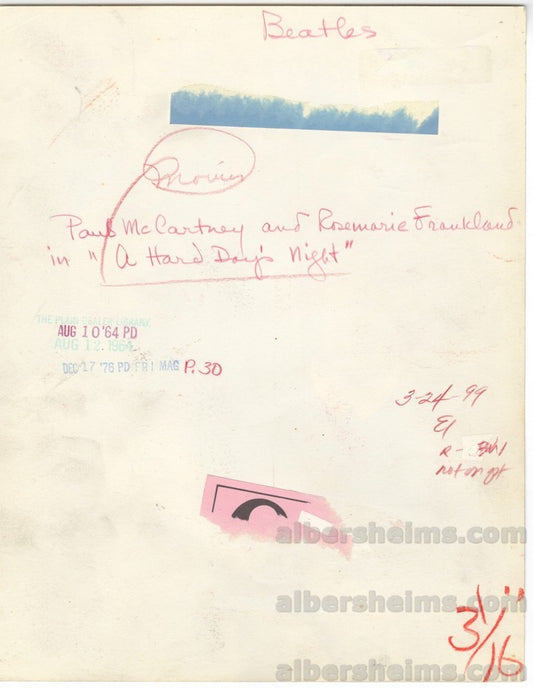 Beatles
Movies
Paul McCartney and Rosemarie Frankland
in "A Hard Day's Night"
THE PLAIN DEALER LIBRARY
AUG 10 '64 PD
AUG 12 1964
DEC 17 '76 PD FRI MAG P.30
3-24-99
not on opt
albersheims.com
albersheims.com
3 1/16"
albersheims.com